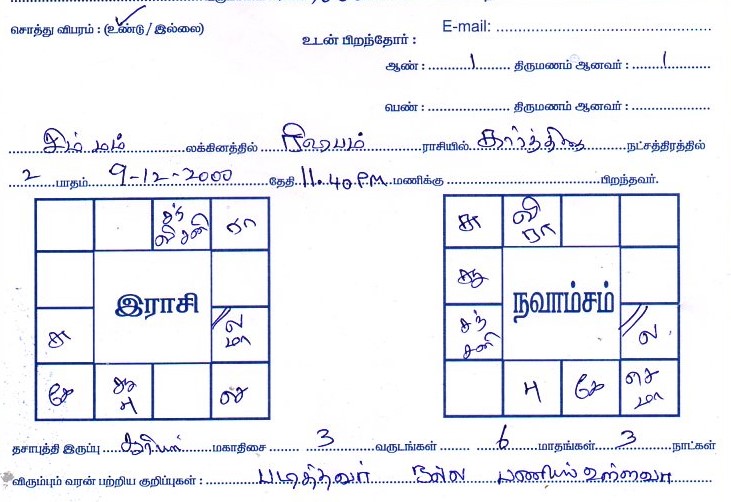 சொத்து விபரம் : (உண்டு / இல்லை)
E-mail:
உடன் பிறந்தோர் :
ஆண் : 1 திருமணம் ஆனவர் : 1
பெண் : திருமணம் ஆனவர் :
சிம்மம் லக்கினத்தில் ரிஷபம் ராசியில் கார்த்திகை நட்சத்திரத்தில்
2 பாதம் 9-12-2000 தேதி 11.40 P.M. மணிக்கு பிறந்தவர்.
சந் சு வி
வி சனி ரா ரா
பு
இராசி நவாம்சம்
சு ல சந் ல
மா சனி
கே சு செ பு கே செ
பு மா
தசாபுத்தி இருப்பு சூரியன் மகாதிசை 3 வருடங்கள் 6 மாதங்கள் 3 நாட்கள்
விரும்பும் வரன் பற்றிய குறிப்புகள் : படித்தவர் நல்ல பணியில் உள்ளவர்